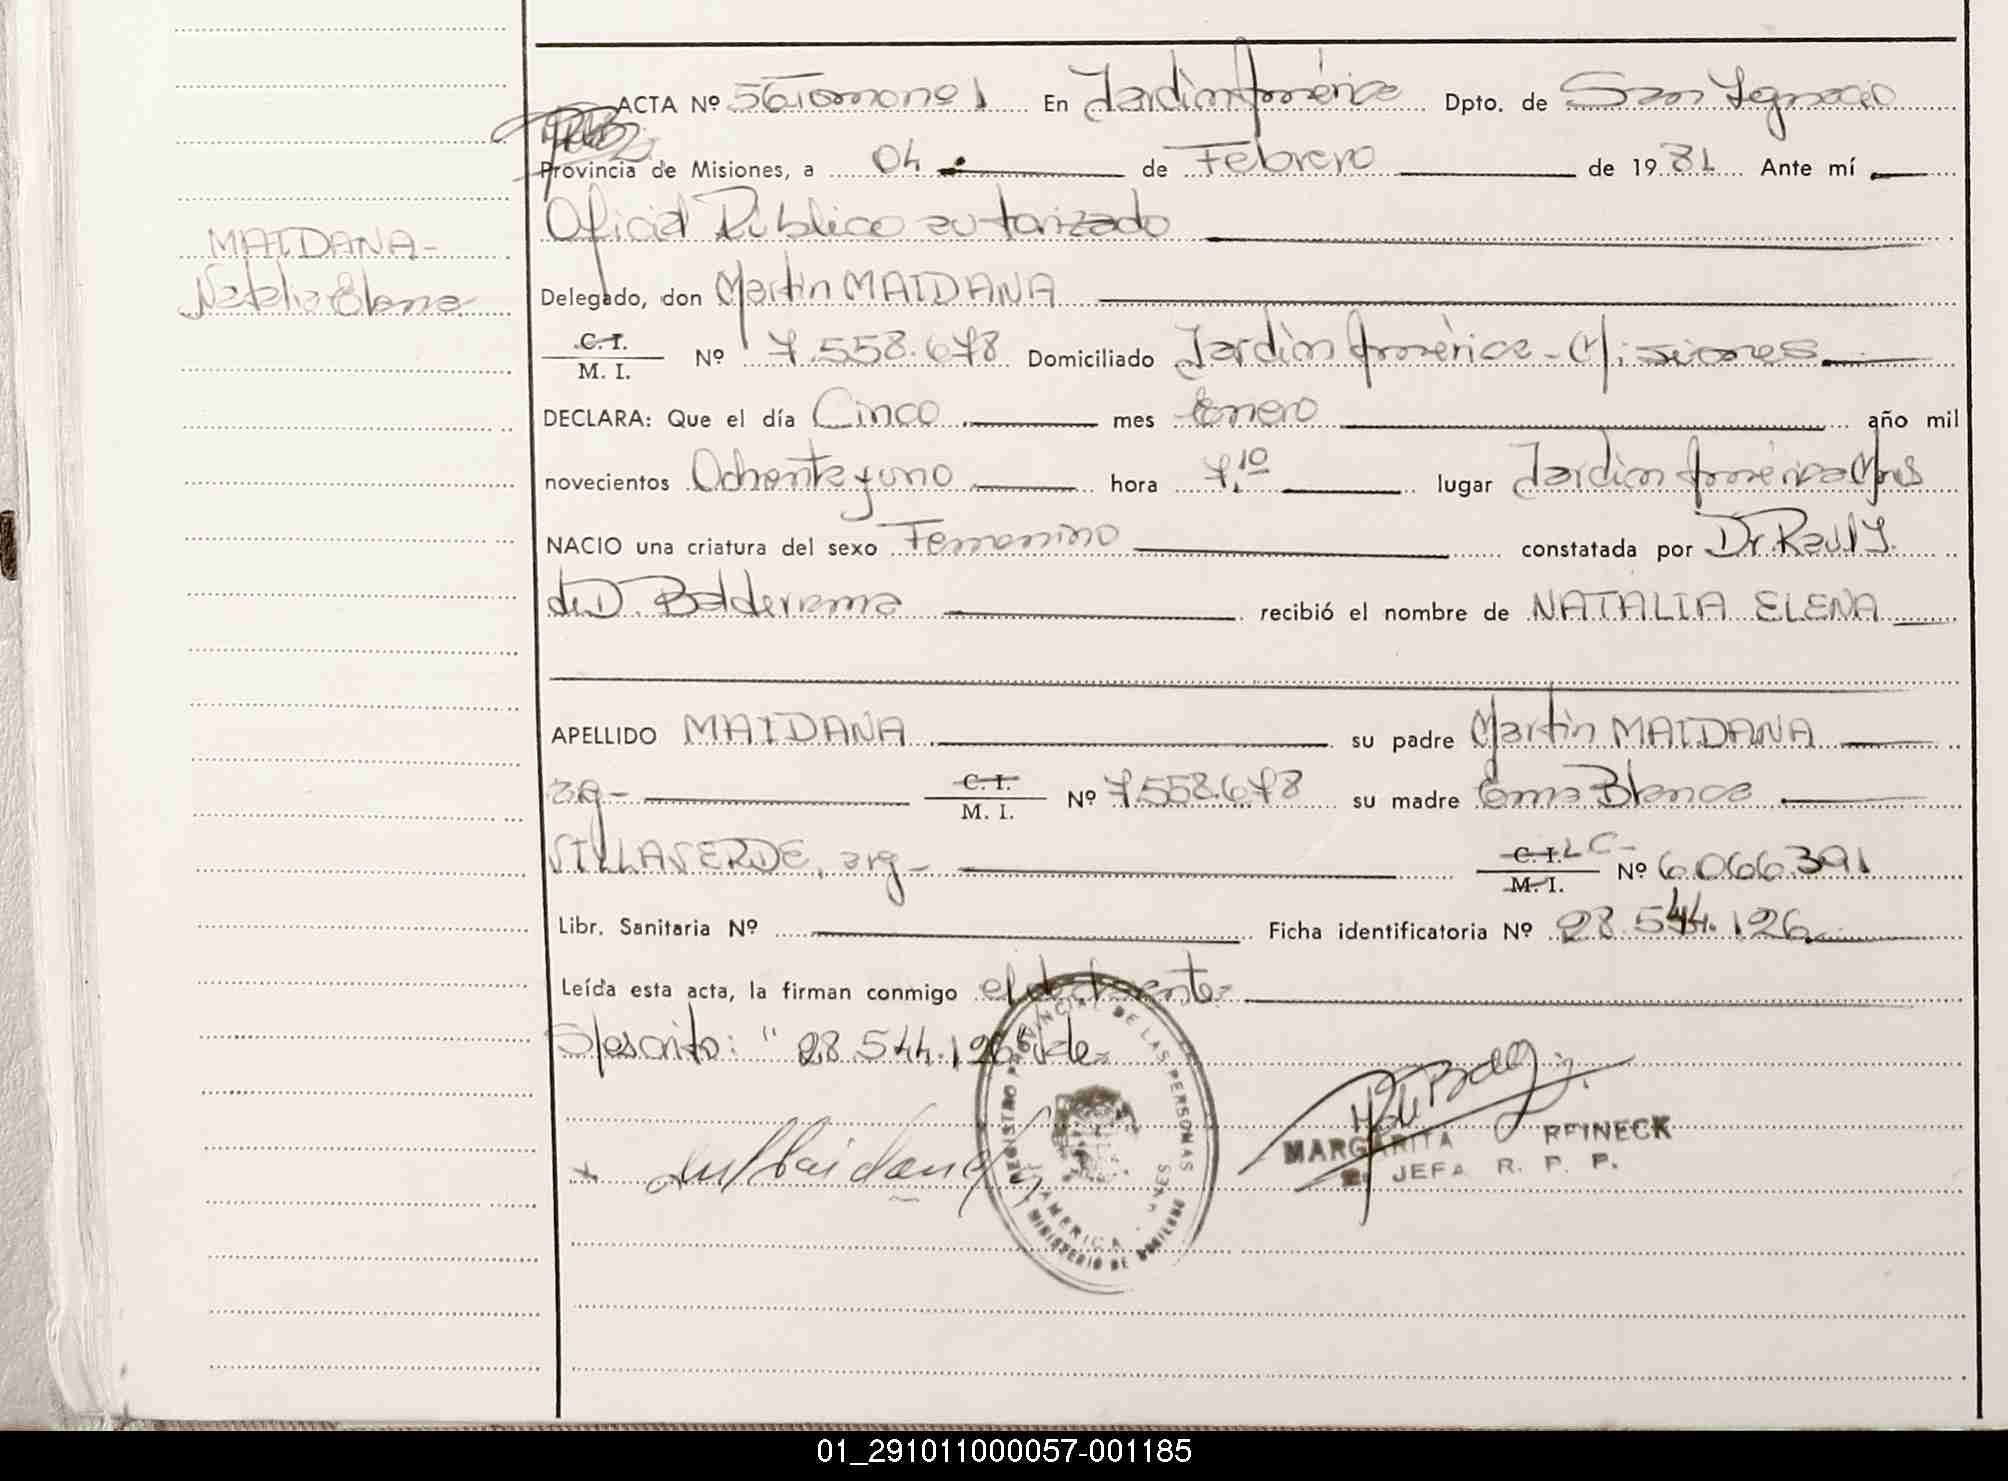 ACTA Nº 56 Tomo nº 1 En Jardin América Dpto. de San Ignacio
Provincia de Misiones, a 04 de Febrero de 1981 Ante mí
Oficial Público autorizado
MAIDANA-
Natalia Elena
Delegado, don Martin MAIDANA
C.I.
M. I. Nº 7.558.678 Domiciliado Jardin América - Misiones
DECLARA: Que el día Cinco mes Enero año mil
novecientos Ochenta y uno hora 7,10 lugar Jardin América Mnes
NACIO una criatura del sexo Femenino constatada por Dr. Raul J.
de D. Balderrama recibió el nombre de NATALIA ELENA
APELLIDO MAIDANA su padre Martin MAIDANA
arg- C. I.
M. I. Nº 7.558.678 su madre Ema Blanca
VILLAVERDE, arg- C. I. LC-
M. I. Nº 6.066.391
Libr. Sanitaria Nº Ficha identificatoria Nº 28.544.126
Leída esta acta, la firman conmigo el declarante-
S/escrito: "28.544.126" Vale-
REGISTRO PROVINCIAL DE LAS PERSONAS
AMERICA
MINISTERIO DE
MARGARITA REINECK
JEFA R. P. P.
01_291011000057-001185